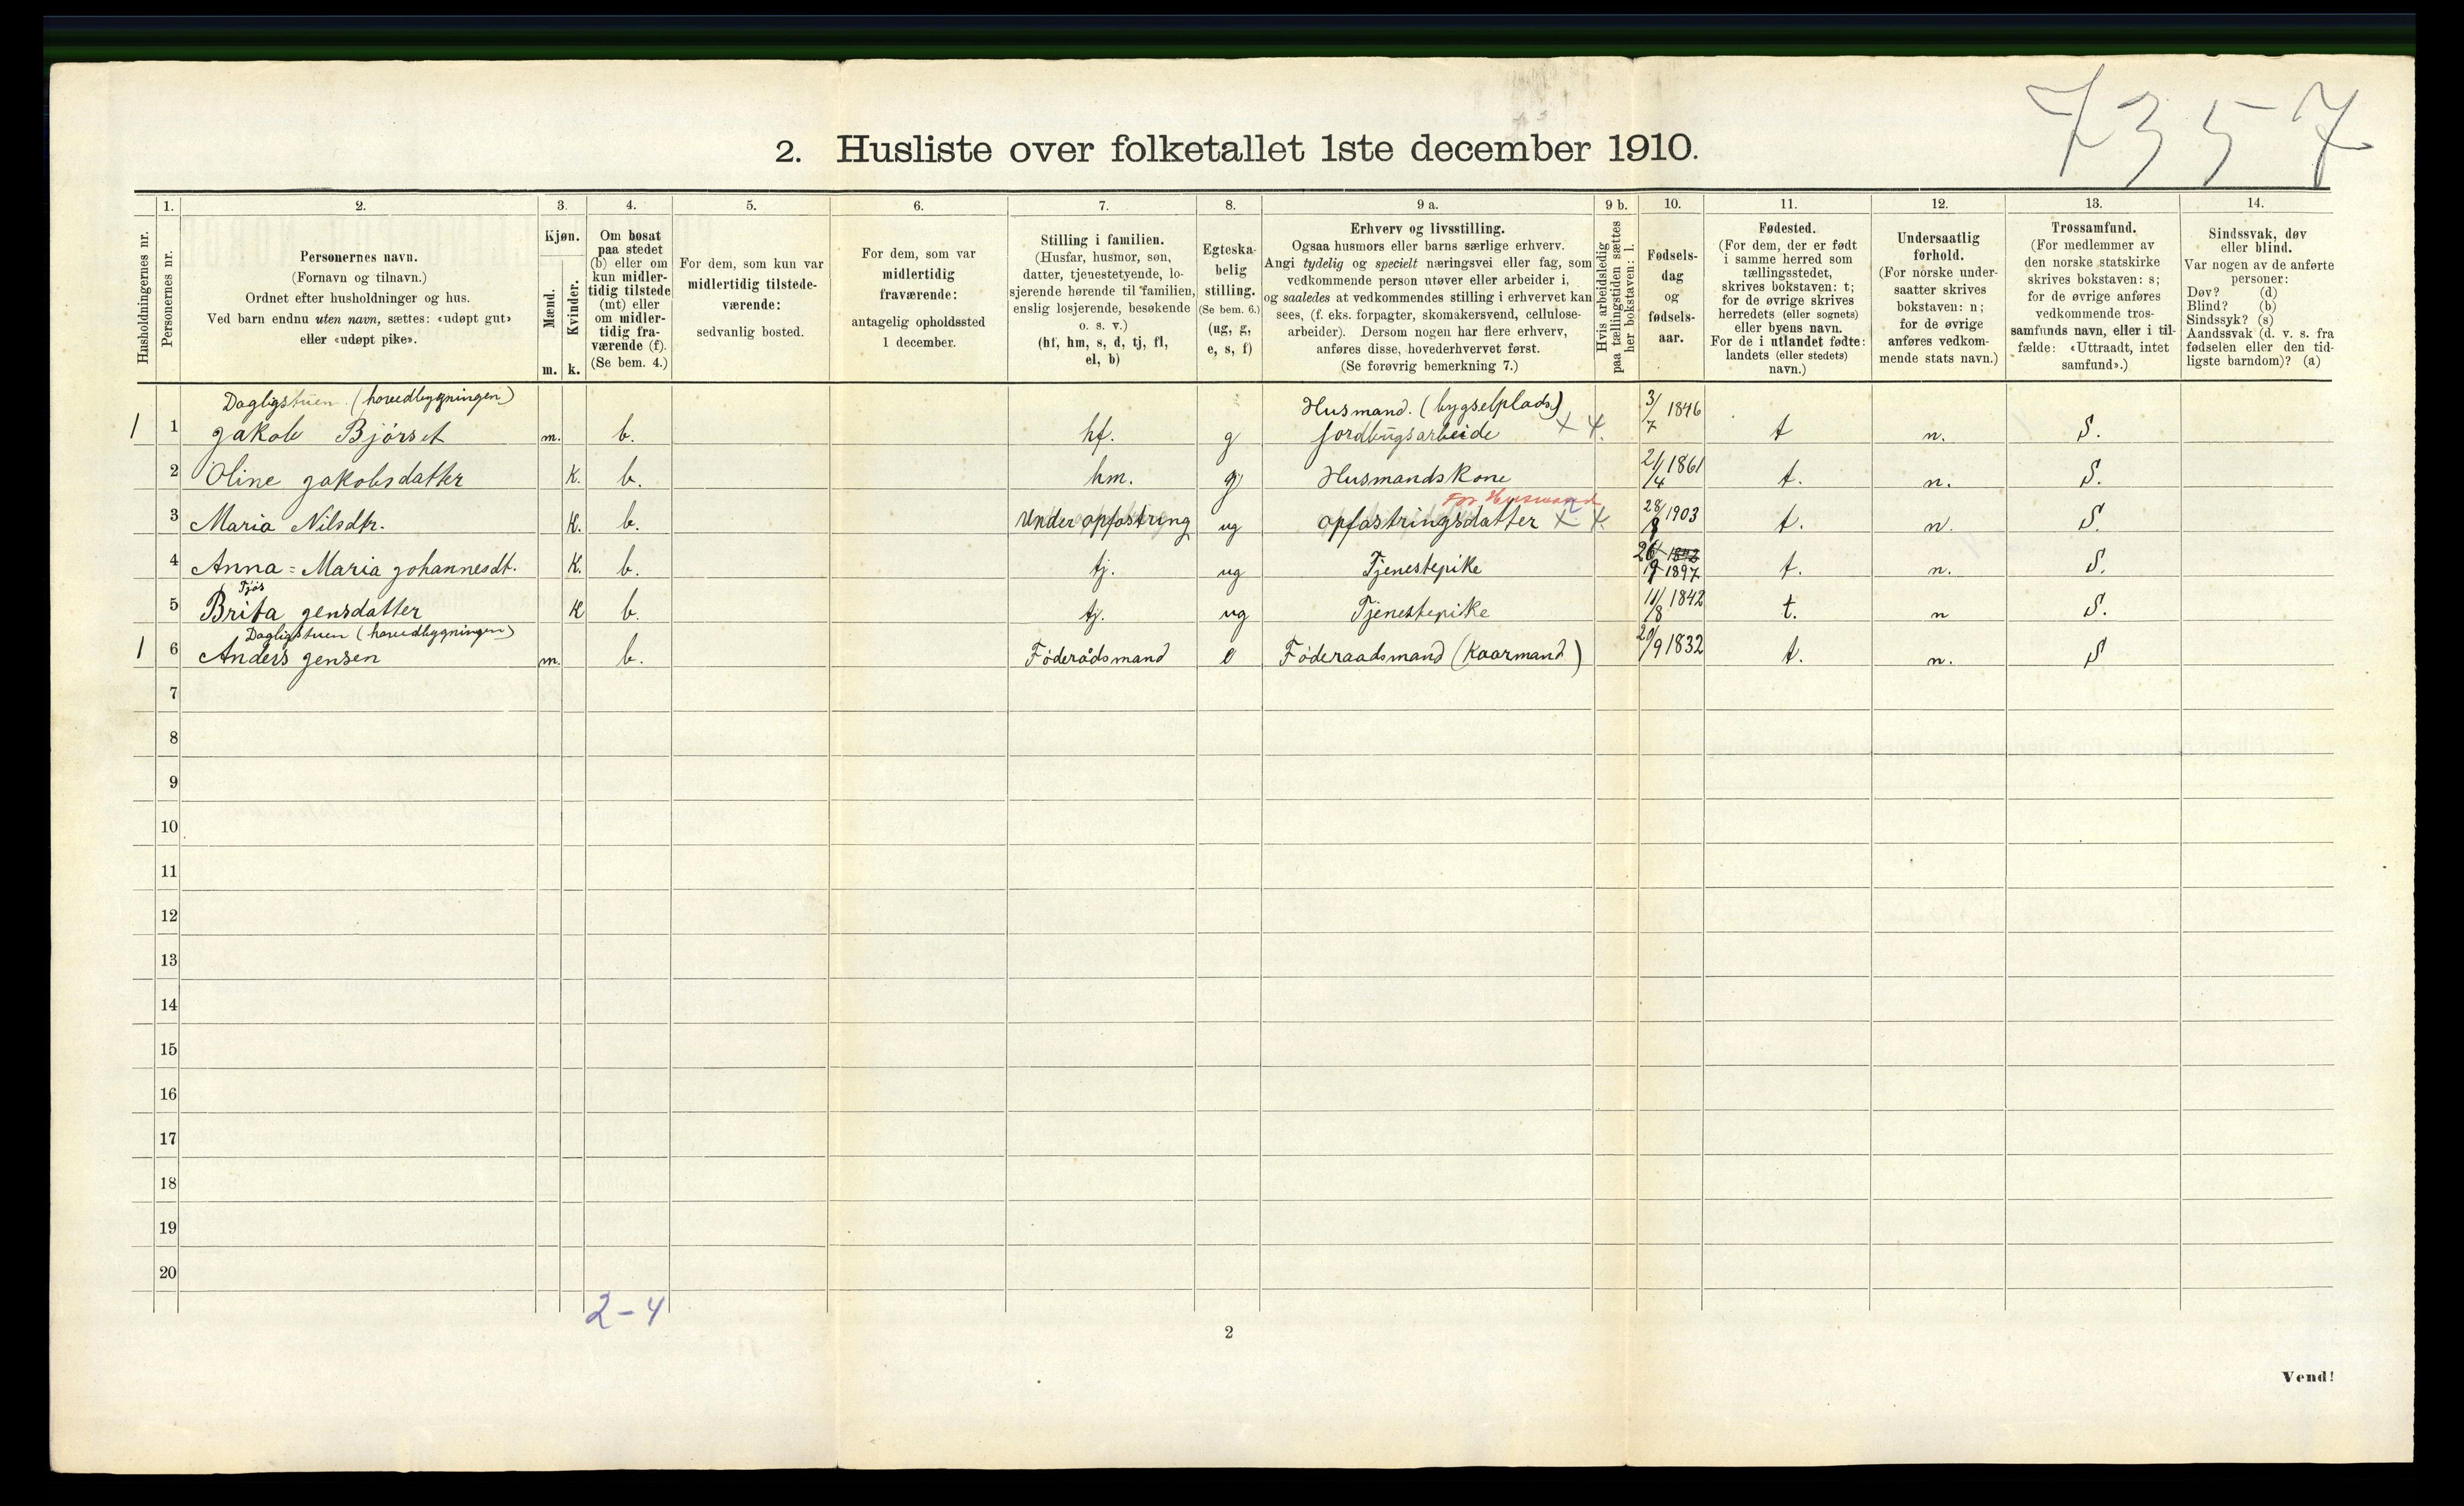 7357
2. Husliste over folketallet 1ste december 1910.
Husholdningernes nr.
1.
Personernes nr.
2.
Personernes navn.
(Fornavn og tilnavn.)
Ordnet efter husholdninger og hus.
Ved barn endnu uten navn, sættes: «udøpt gut»
eller «udøpt pike».
3.
Kjøn.
Mænd.
Kvinder.
m. k.
4.
Om bosat
paa stedet
(b) eller om
kun midler-
tidig tilstede
(mt) eller
om midler-
tidig fra-
værende (f).
(Se bem. 4.)
5.
For dem, som kun var
midlertidig tilstede-
værende:
sedvanlig bosted.
6.
For dem, som var
midlertidig
fraværende:
antagelig opholdssted
1 december.
7.
Stilling i familien.
(Husfar, husmor, søn,
datter, tjenestetyende, lo-
sjerende hørende til familien,
enslig losjerende, besøkende
o. s. v.)
(hf, hm, s, d, tj, fl,
el, b)
8.
Egteska-
belig
stilling.
(Se bem. 6.)
(ug, g,
e, s, f)
9 a.
Erhverv og livsstilling.
Ogsaa husmors eller barns særlige erhverv.
Angi tydelig og specielt næringsvei eller fag, som
vedkommende person utøver eller arbeider i,
og saaledes at vedkommendes stilling i erhvervet kan
sees, (f. eks. forpagter, skomakersvend, cellulose-
arbeider). Dersom nogen har flere erhverv,
anføres disse, hovederhvervet først.
(Se forøvrig bemerkning 7.)
9 b.
Hvis arbeidsledig
paa tællingstiden sættes
her bokstaven: l.
10.
Fødsels-
dag
og
fødsels-
aar.
11.
Fødested.
(For dem, der er født
i samme herred som
tællingsstedet,
skrives bokstaven: t;
for de øvrige skrives
herredets (eller sognets)
eller byens navn.
For de i utlandet fødte:
landets (eller stedets)
navn.)
12.
Undersaatlig
forhold.
(For norske under-
saatter skrives
bokstaven: n;
for de øvrige
anføres vedkom-
mende stats navn.)
13.
Trossamfund.
(For medlemmer av
den norske statskirke
skrives bokstaven: s;
for de øvrige anføres
vedkommende tros-
samfunds navn, eller i til-
fælde: «Uttraadt, intet
samfund».)
14.
Sindssvak, døv
eller blind.
Var nogen av de anførte
personer:
Døv? (d)
Blind? (b)
Sindssyk? (s)
Aandssvak (d. v. s. fra
fødselen eller den tid-
ligste barndom)? (a)
Dagligstuen (hovedbygningen) Husmand. (bygselplads)
1 1 Jakob Bjørset m. b. hf. g Jordbrugsarbeide 3/7 1846 t n. S.
2 Oline Jakobsdatter K. b. hm. g Husmandskone 21/4 1861 t. n. S.
For Husmand
3 Maria Nilsdtr. K. b. Under opfostring ug opfostringsdatter 28/8 1903 t. n. S.
4 Anna=Maria Johannesdt. K. b. tj. ug Tjenestepike 1897 t. n. S.
5 Brita Jensdatter K b. tj. ug Tjenestepike 11/8 1842 t. n S.
Dagligstuen (hovedbygningen)
1 6 Anders Jensen m. b. Föderådsmand e Föderaadsmand (Kaarmand) 20/9 1832 t. n. S
7
8
9
10
11
12
13
14
15
16
17
18
19
20
2-4
2
Vend!